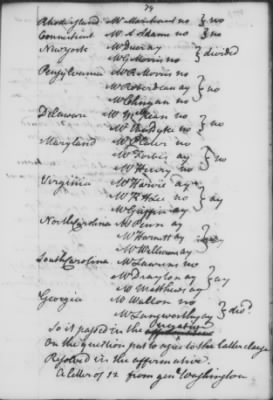 79
Rhodeisland Mr Marchant no } no
Connecticut Mr A Adams no } no
Newyork Mr Duer ay
Mr G Morris no } divided
Pensylvania Mr R Morris no
Mr Roberdeau ay } no
Mr Clingan no
Delaware Mr McKean no
Mr Van Dyke no } no
Maryland Mr Plater no
Mr Forbes ay } no
Mr Henry no
Virginia Mr Harvie ay
Mr F L Lee no } ay
Mr Griffin ay
North Carolina Mr Penn ay
Mr Harnett ay } ay
Mr Williams ay
South Carolina Mr Laurens no
Mr Drayton ay } ay
Mr Matthews ay
Georgia Mr Walton no
Mr Langworthy ay } divd
So it passed in the Negative
On the question put to agree to the latter clause
Resolved in the affirmative
A letter of 12 from genl Washington